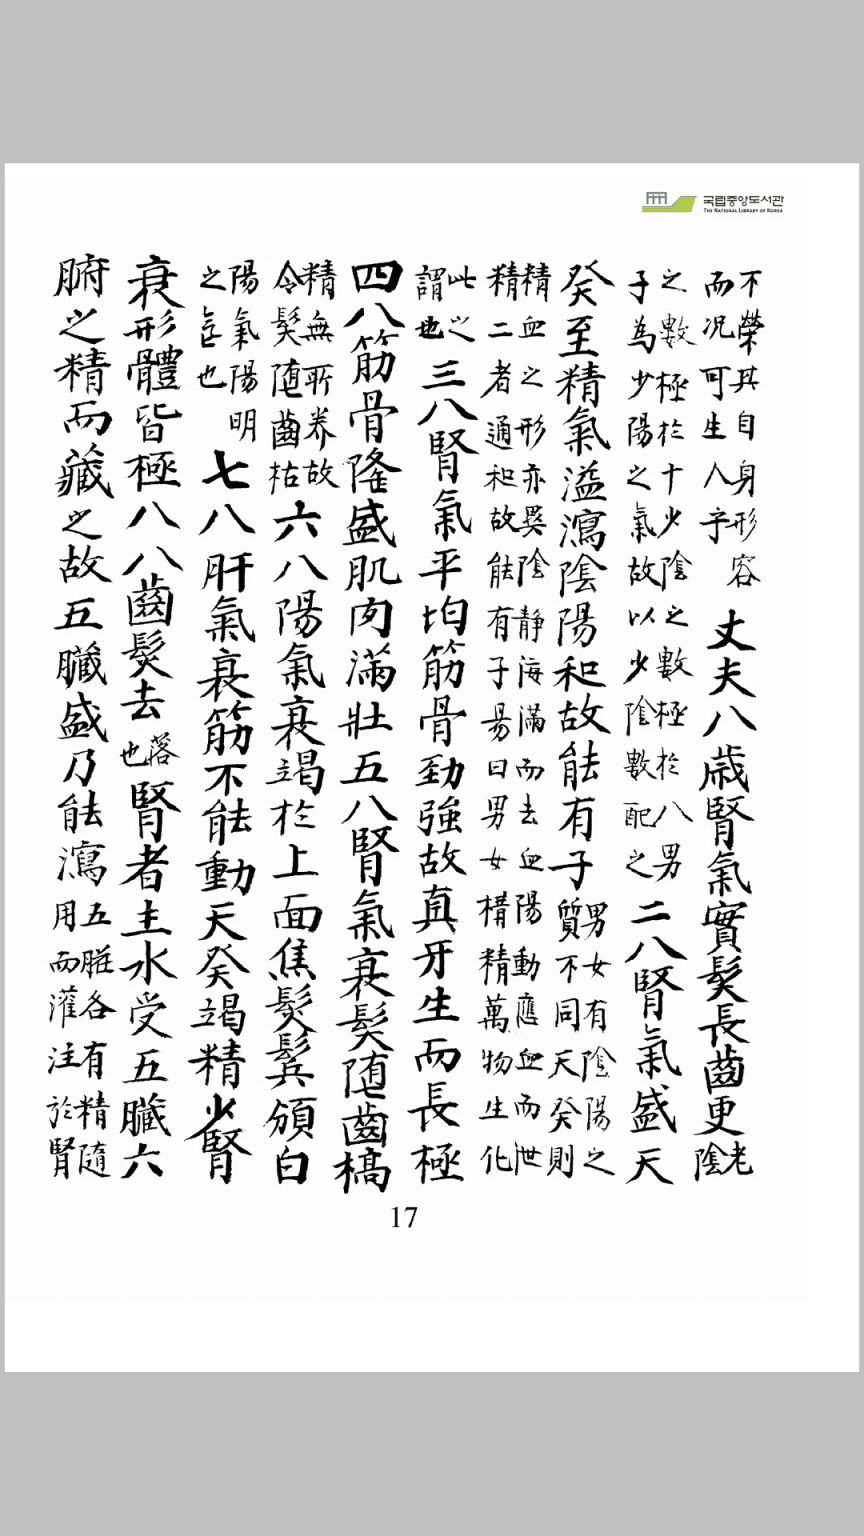 국립중앙도서관
THE NATIONAL LIBRARY OF KOREA
不榮其自身形容而况可生人乎丈夫八歳腎氣實髮長齒更老陰
之數極於十少陰之數極於八男子為少陽之氣故以少陰數配之二八腎氣盛天
癸至精氣溢瀉陰陽和故能有子男女有陰陽之質不同天癸則
精血之形亦異陰静海滿而去血陽動應血而泄精二者通和故能有子昜曰男女構精萬物生化
此之謂也三八腎氣平均筋骨勁強故真牙生而長極
四八筋骨隆盛肌肉滿壯五八腎氣衰髮随齒槁
精無所养故令髮随齒枯六八陽氣衰竭於上面焦髮鬂頒白
陽氣陽明之氣也七八肝氣衰筋不能動天癸竭精少腎
衰形體皆極八八齒髮去落也腎者主水受五臟六
腑之精而藏之故五臟盛乃能瀉五臟各有精隨用而灌注於腎
17